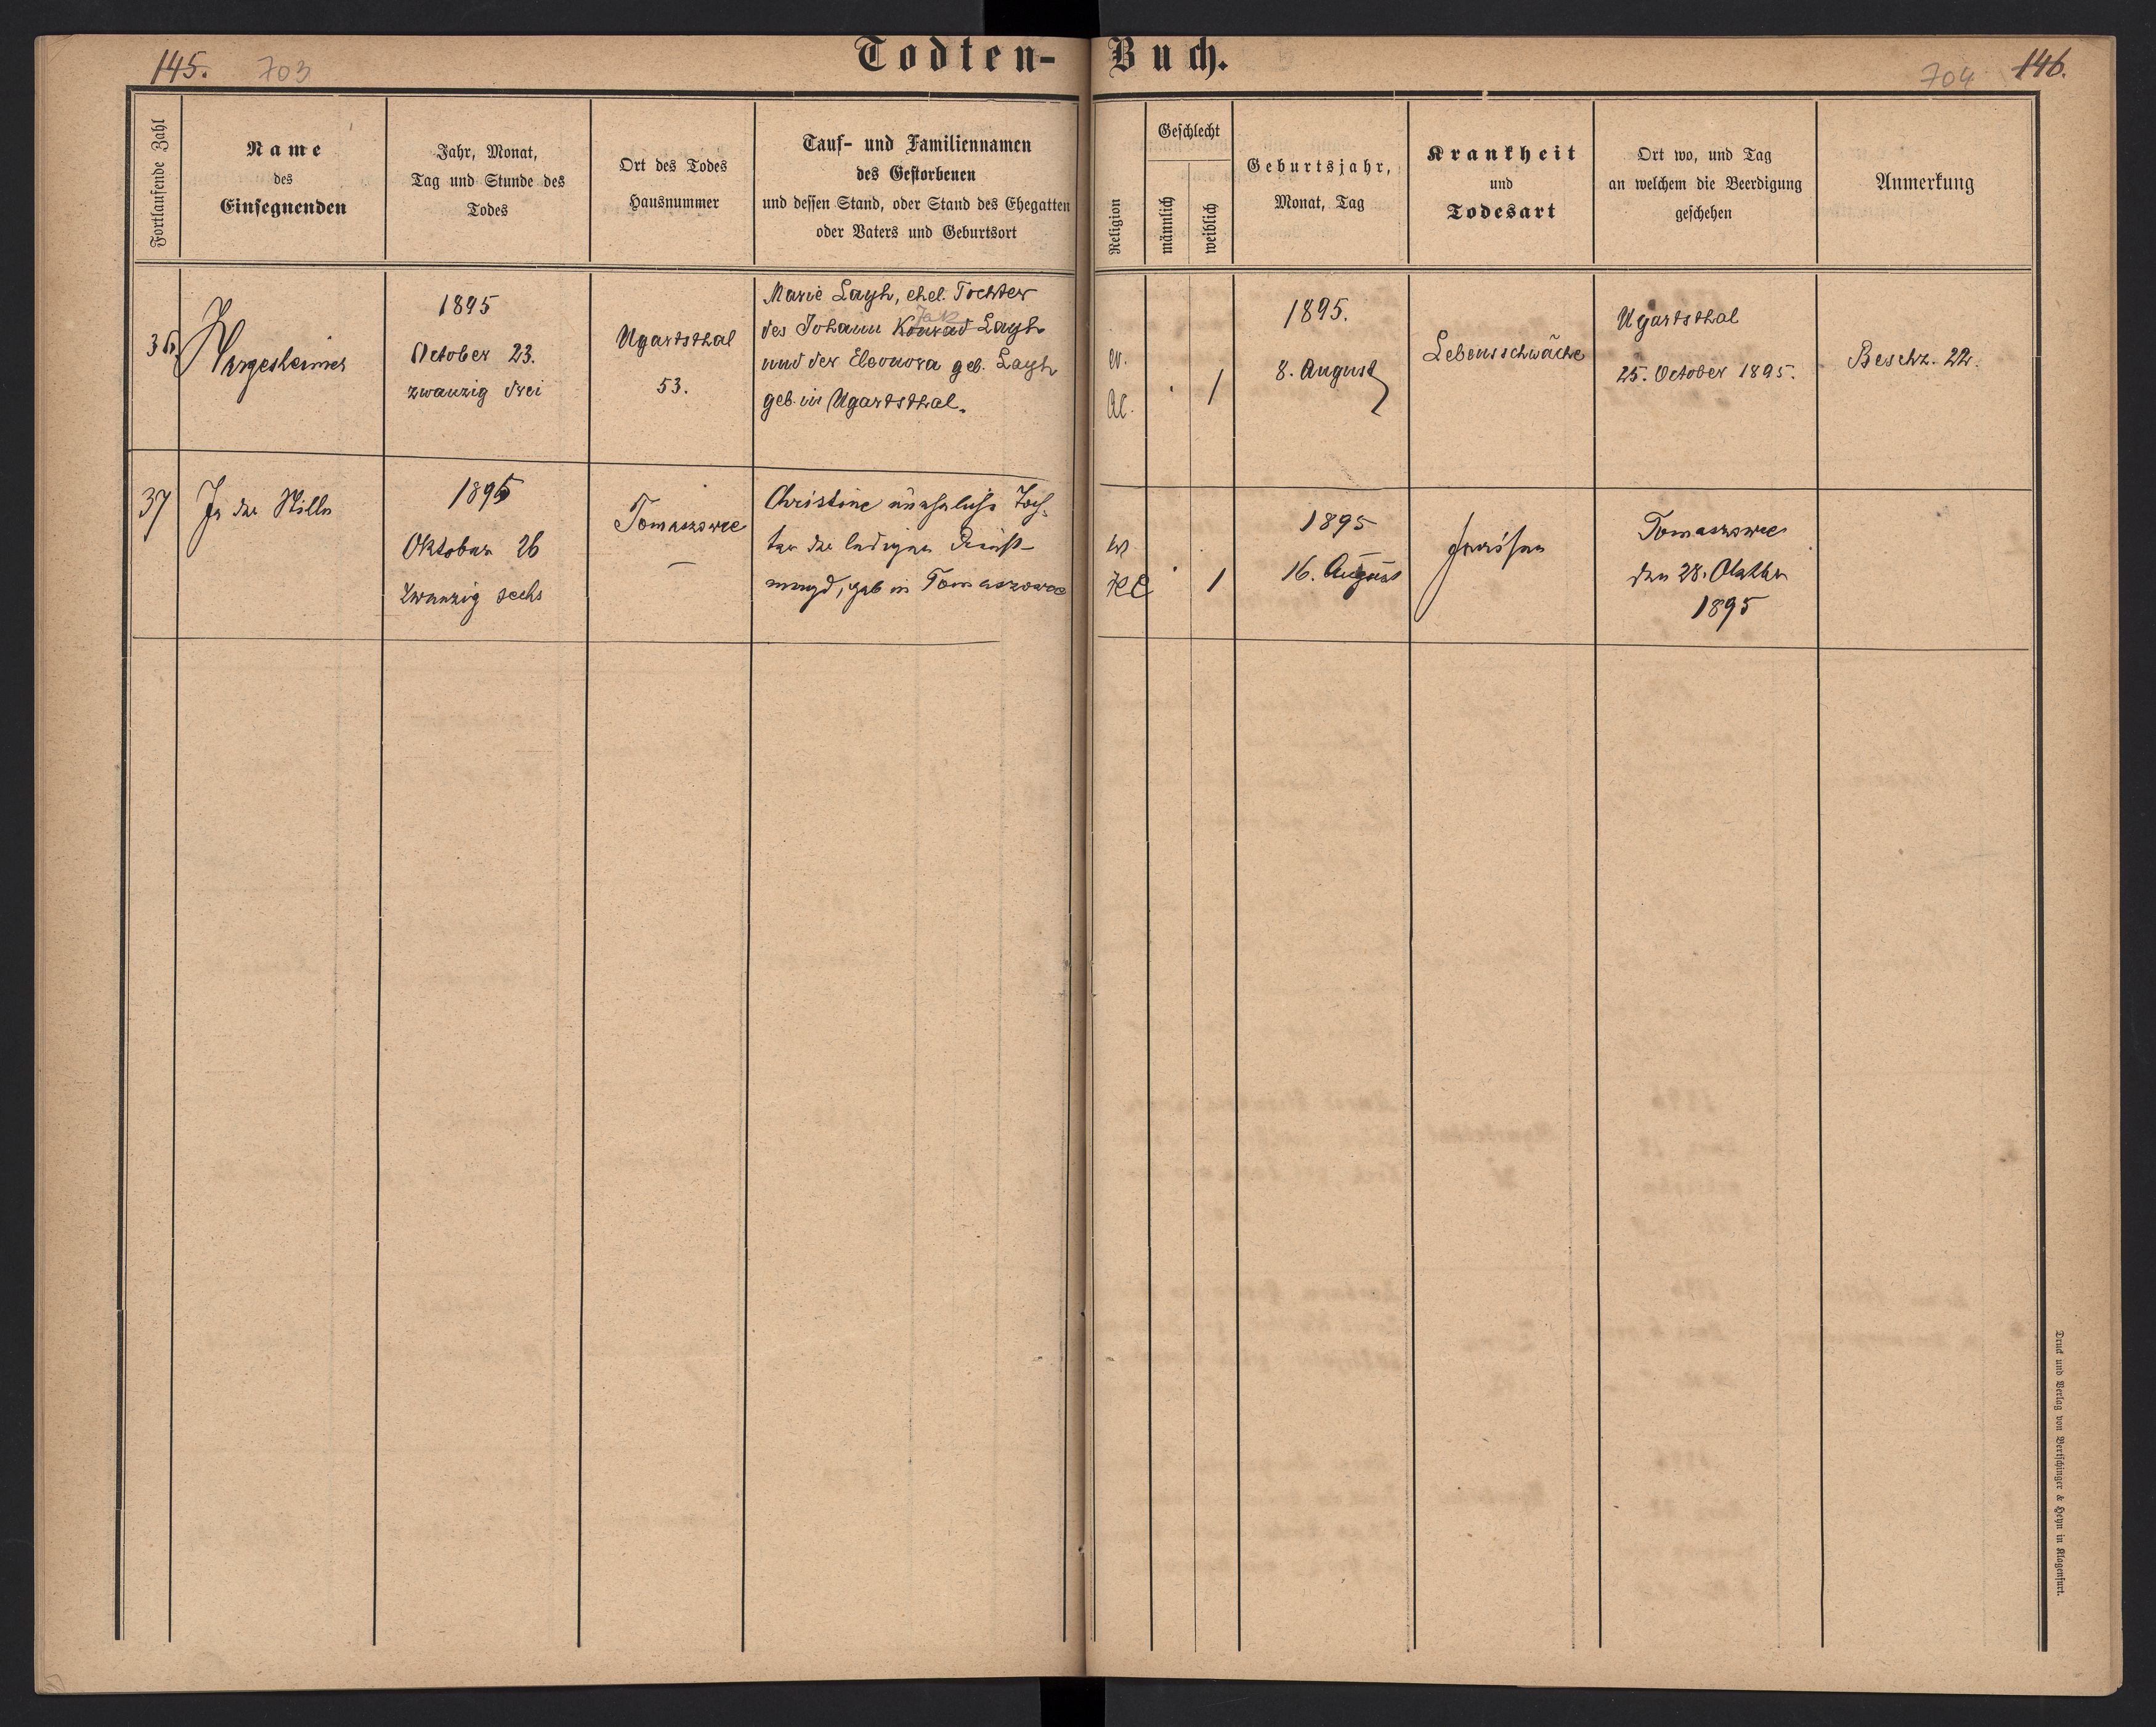 145. 703
Todten-Buch.
704 146.
Fortlaufende Zahl
Name
des
Einsegnenden
Jahr, Monat,
Tag und Stunde des
Todes
Ort des Todes
Hausnummer
Tauf- und Familiennamen
des Gestorbenen
und dessen Stand, oder Stand des Ehegatten
oder Vaters und Geburtsort
Religion
Geschlecht
männlich
weiblich
Geburtsjahr,
Monat, Tag
Krankheit
und
Todesart
Ort wo, und Tag
an welchem die Beerdigung
geschehen
Anmerkung
36.
Hargesheimer
1895
October 23.
zwanzig drei
Ugartsthal
53.
Marie Layh, ehel. Tochter
Jak
des Johann Konrad Layh
und der Eleonora geb. Layh
geb. in Ugartsthal.
ev.
AC.
1
1895.
8. August
Lebensschwäche
Ugartsthal
25. October 1895.
Beschz. 22.
37
In der Stille
1895
Oktober 26
zwanzig sechs
Tomaszowce
—
Christine uneheliche Toch-
ter der ledigen Dienst-
magd, geb in Tomaszowce
ev
HC
1
1895
16. August
Fraisen
Tomaszowce
den 28. Oktober
1895
Druck und Verlag von Bertschinger & Heyn in Klagenfurt.